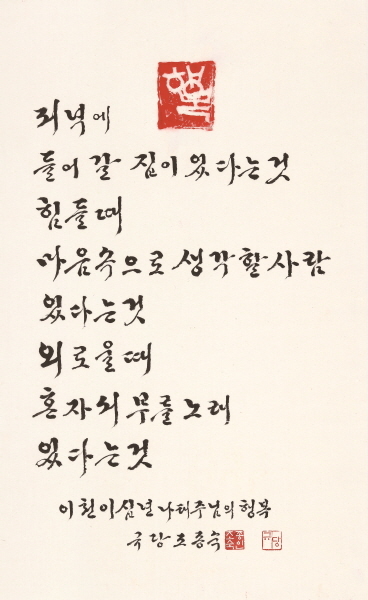 행복
저녁에
들어 갈 집이 있다는것
힘들때
마음속으로 생각할사람
있다는것
외로울때
혼자서 부를노래
있다는것
이천이십년 나태주님의 행복
국당 조종숙